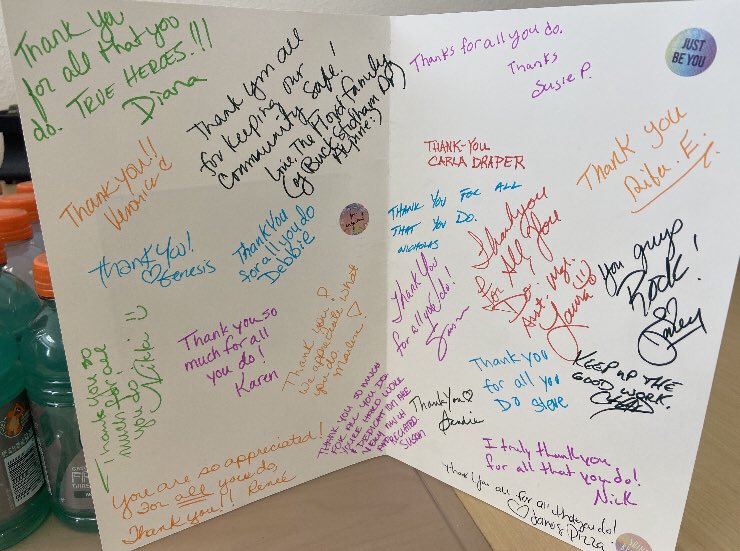 Thank you
for all that you
do. TRUE HEROES!!!
Diana
Thank you all
for keeping our
community safe!
Love The Floyd family
Thank you!!
Veronica
Thank you!
Genesis
Thank you
for all you do
Debbie
Thank you so
much for all
you do!
Nikki
Thank you so
much for all
you do!
Karen
Thank you!
we appreciate what
you do.
Marlene
THANK YOU SO MUCH
FOR ALL YOU DO.
YOUR HARD WORK
& DEDICATION ARE
VERY MUCH
APPRECIATED
Susan
You are so appreciated!
For all you do,
Thank you!! Reneé
Thanks for all you do.
Thanks
Susie P.
JUST
BE YOU
THANK-YOU
CARLA DRAPER
Thank you
Rita. E.
THANK YOU FOR ALL
THAT YOU DO.
NICHOLAS
Thank you
for All you
Do.
Laura
you guys
Rock!
Thank you
for all you do!
Thank you
for all you
Do Steve
KEEP UP THE
GOOD WORK.
Thank You
I truly thank you
for all that you do!
Nick
Thank you all for all that you do!
Jano's Pizza